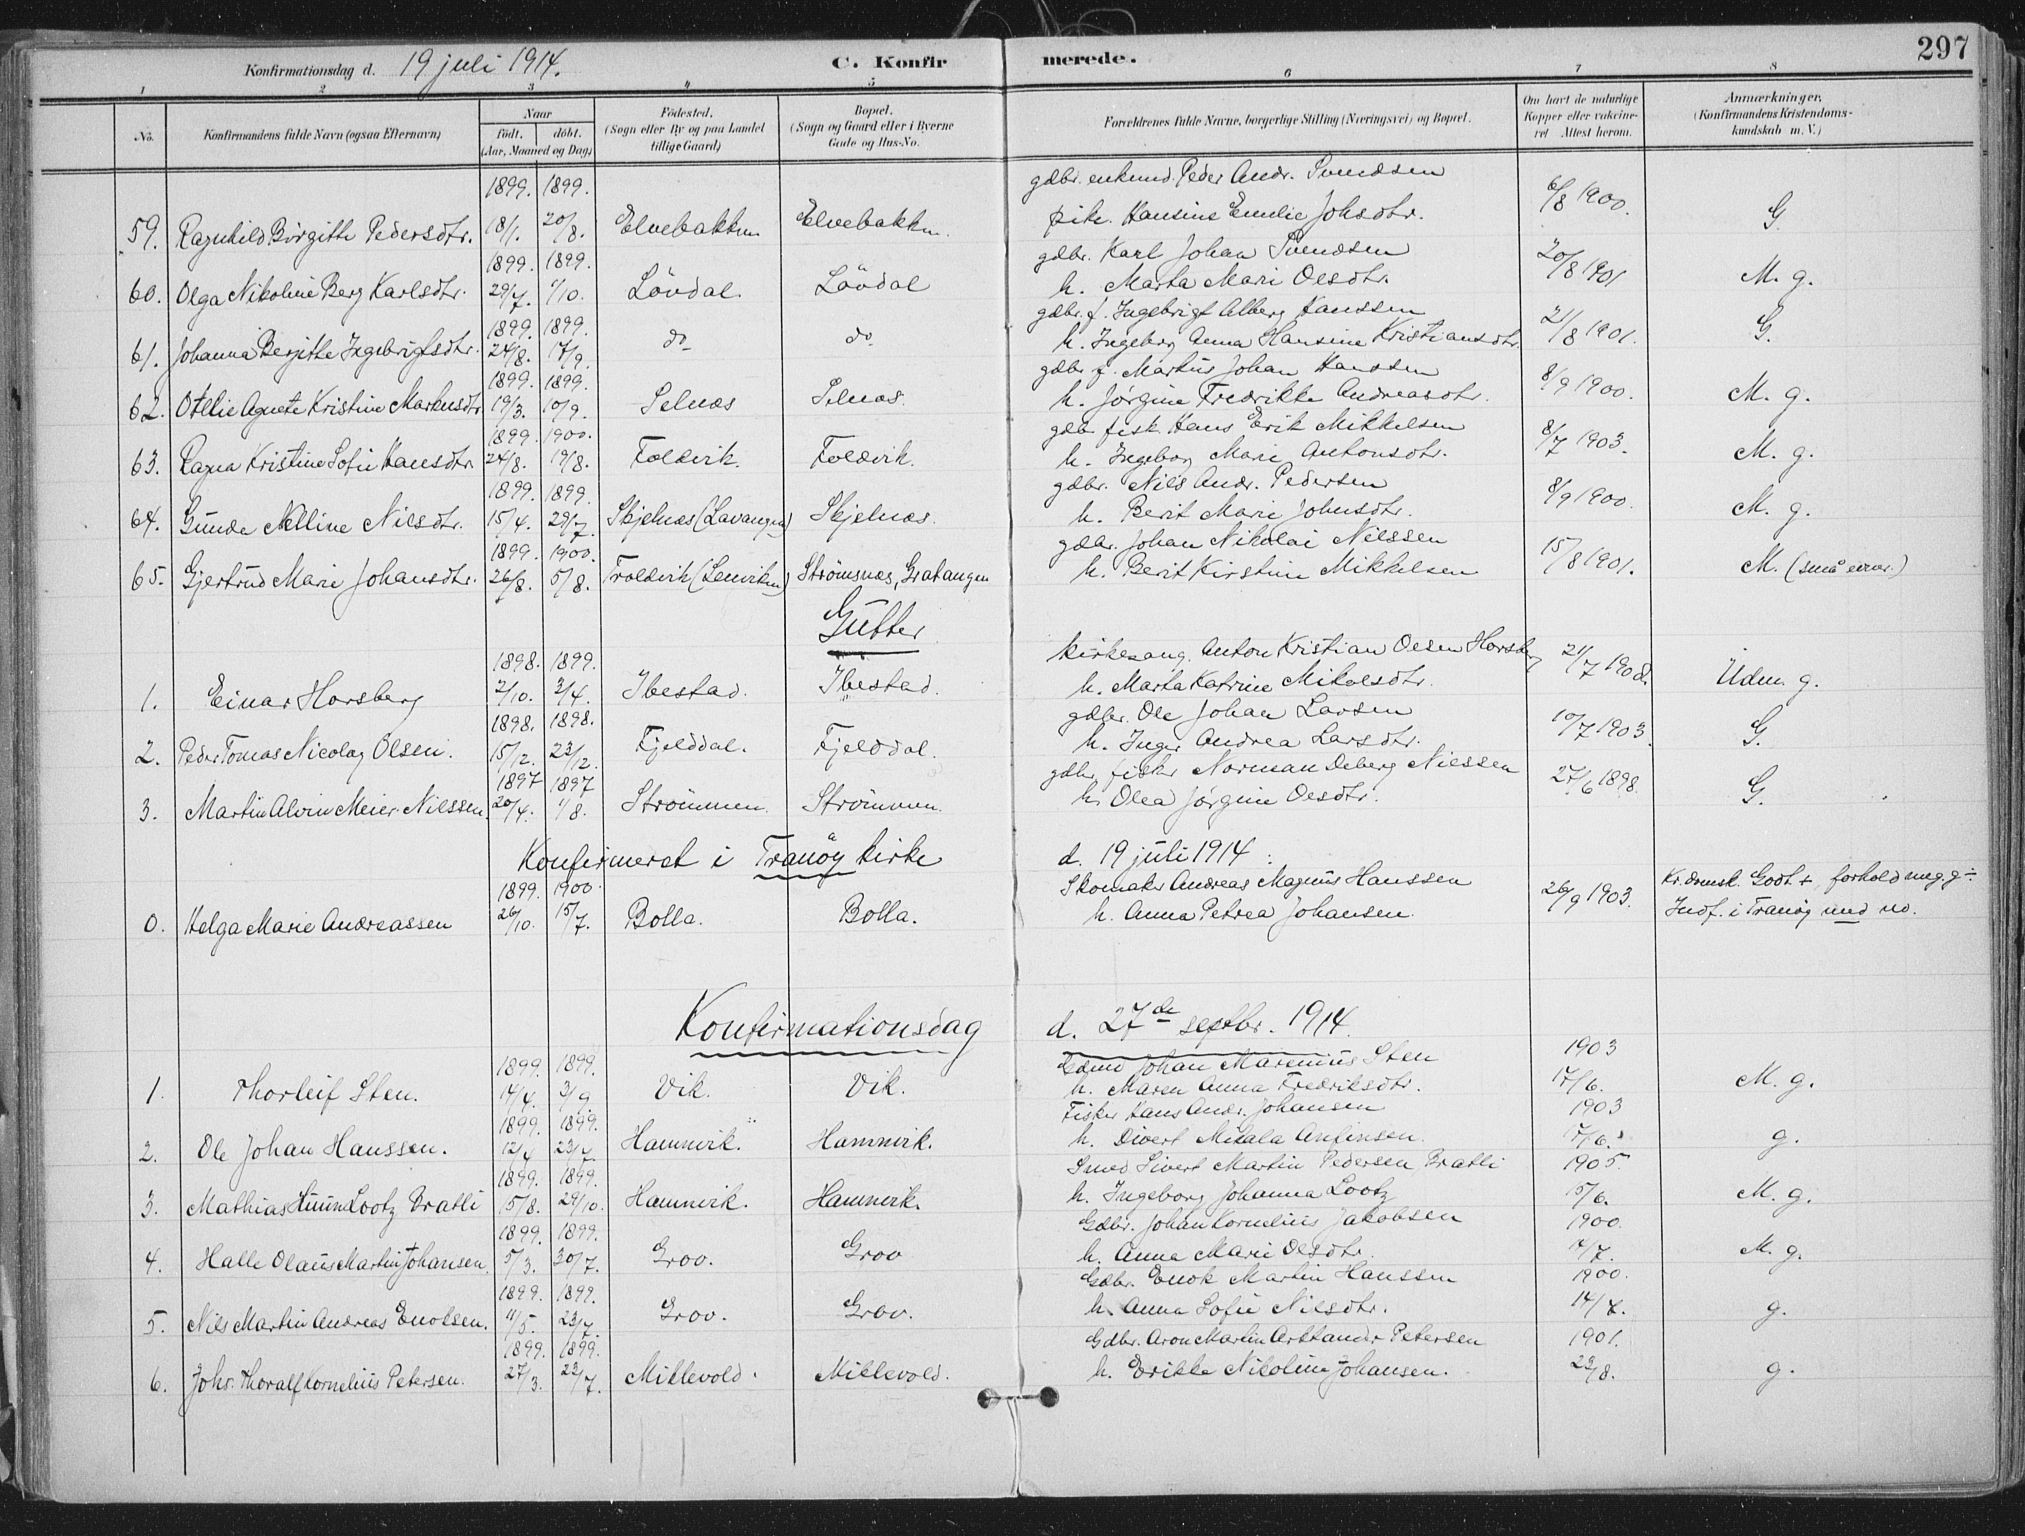 297
Konfirmationsdag d. 19 juli 1914. C. Konfirmerede.
1 2 3 4 5 6 7 8
No. Konfirmandens fulde Navn (ogsaa Efternavn) Naar födt. döbt. (Aar, Maaned og Dag) Födested. (Sogn eller By og paa Landet tillige Gaard) Bopæl. (Sogn og Gaard eller i Byerne Gade og Hus-No. Forældrenes fulde Navne, borgerlige Stilling (Næringsvei) og Bopæl. Om havt de naturlige Kopper eller vakcineret Attest herom. Anmærkninger. (Konfirmandens Kristendomskundskab m. V.)
1899. 1899. gdbr. enkemd. Peder Andr. Svendsen
59. Ragnhild Birgitte Pedersdtr. 18/1. 20/8. Elvebakken Elvebakken. pike Hansine Emelie Johsdtr. 6/8 1900. G.
1899. 1899. gdbr. Karl Johan Svendsen
60. Olga Nikoline Berg Karlsdtr. 29/7. 1/10. Lövdal. Lövdal h. Marta Mari Olsdtr. 20/8 1901 M. g.
1899. 1899. gdbr. f. Ingebrigt Alberg Hanssen
61. Johanna Bergitte Ingebrigtsdtr. 24/8. 17/9. do do h. Ingeborg Anna Hansine Kristiansdtr. 21/8 1901. G.
1899. 1899. gdbr. f. Martus Johan Hanssen
62. Otelie Agnete Kristine Markusdtr 19/3. 10/9. Selnæs Selnæs. h. Jørgine Fredrikke Andreasdtr. 8/9 1900. M. g.
1899. 1900. gdbr. fisk. Hans Erik Mikkelsen
63. Ragna Kristine Sofie Hansdtr 24/8. 19/8. Foldvik. Foldvik. h. Ingeborg Marie Antonsdtr. 8/7 1903. M. g.
1899. 1899. gdbr. Nils Andr. Pedersen
64. Gunda Nelline Nilsdtr. 15/4. 29/7. Skjelnæs (Lavangen) Skjelnæs. h. Berit Marie Johnsdtr. 8/9 1900. M. g.
1899. 1900. gdbr. Johan Nikolai Nilssen
65. Gjertrud Marie Johansdtr. 26/8. 5/8. Troldvik (Lenviken) Strømsnæs, Gratangen h. Berit Kirstine Mikkelsen 15/8 1901. M. (små evner.)
Gutter
1898. 1899. kirkesang. Anton Kristian Olsen Horsberg
1. Einar Horsberg 2/10. 3/4. Ibestad. Ibestad. h. Marta Katrine Mikalsdtr. 21/7 1908. Udm. g.
1898. 1898. gdbr. Ole Johan Larsen
2. Peder Tomas Nicolay Olsen. 15/12. 23/12. Fjelddal. Fjelddal. h. Inger Andrea Larsdtr. 10/7 1903. G.
1897 1897 gdbr. fisker Norman Deberg Nilssen
3. Martin Alvin Meier Nilssen. 20/4. 1/8. Strömmen. Strömmen. h. Olea Jørgine Olsdtr. 27/6 1898. G.
Konfirmeret i Tranöy kirke d. 19 juli 1914:
1899. 1900. Skomaker Andreas Magnus Hanssen Kr.domsk. Godt +, forhold meg. g ÷
0. Helga Marie Andreassen 26/10. 15/7. Bolla. Bolla. h. Anna Petrea Johansen. 26/9 1903. Indf. i Tranöy med no.
Konfirmationsdag d. 27de septbr. 1914.
1899. 1899. Gdmd Johan Marenius Sten 1903
1. Thorleif Sten. 14/4. 3/9. Vik. Vik. h. Maren Anna Fredriksdtr. 17/6. M. g.
1899. 1899. Fisker Hans Andr. Johansen 1903
2. Ole Johan Hanssen. 12/4 23/7. Hamnvik. Hamnvik. h. Divert Mikala Anfinsen. 17/6. g.
1899. 1899. Smed Sivert Martin Pedersen Bratli 1905.
3. Mathias Huun Lootz Bratli 5/8. 29/10. Hamnvik. Hamnvik. h. Ingeborg Johanna Lootz 5/6. M. g.
1899. 1899. Gdbr. Johan Kornelius Jakobsen 1900.
4. Halle Olaus Martin Johansen. 5/3. 30/7. Grov. Grov h. Anna Marie Olsdtr. 14/7. M. g.
1899. 1899. Gdbr. Enok Martin Hanssen 1900.
5. Nils Martin Andreas Enoksen. 11/5. 23/7. Grov. Grov. h. Anna Sofie Nilsdtr. 14/7. g.
1899. 1899. Gdbr. Aron Martin Arktander Petersen 1901.
6. Johs. Thoralf Kornelius Petersen. 27/3. 23/7. Millevold. Millevold. h. Erikke Nikoline Johansen. 23/8. g.